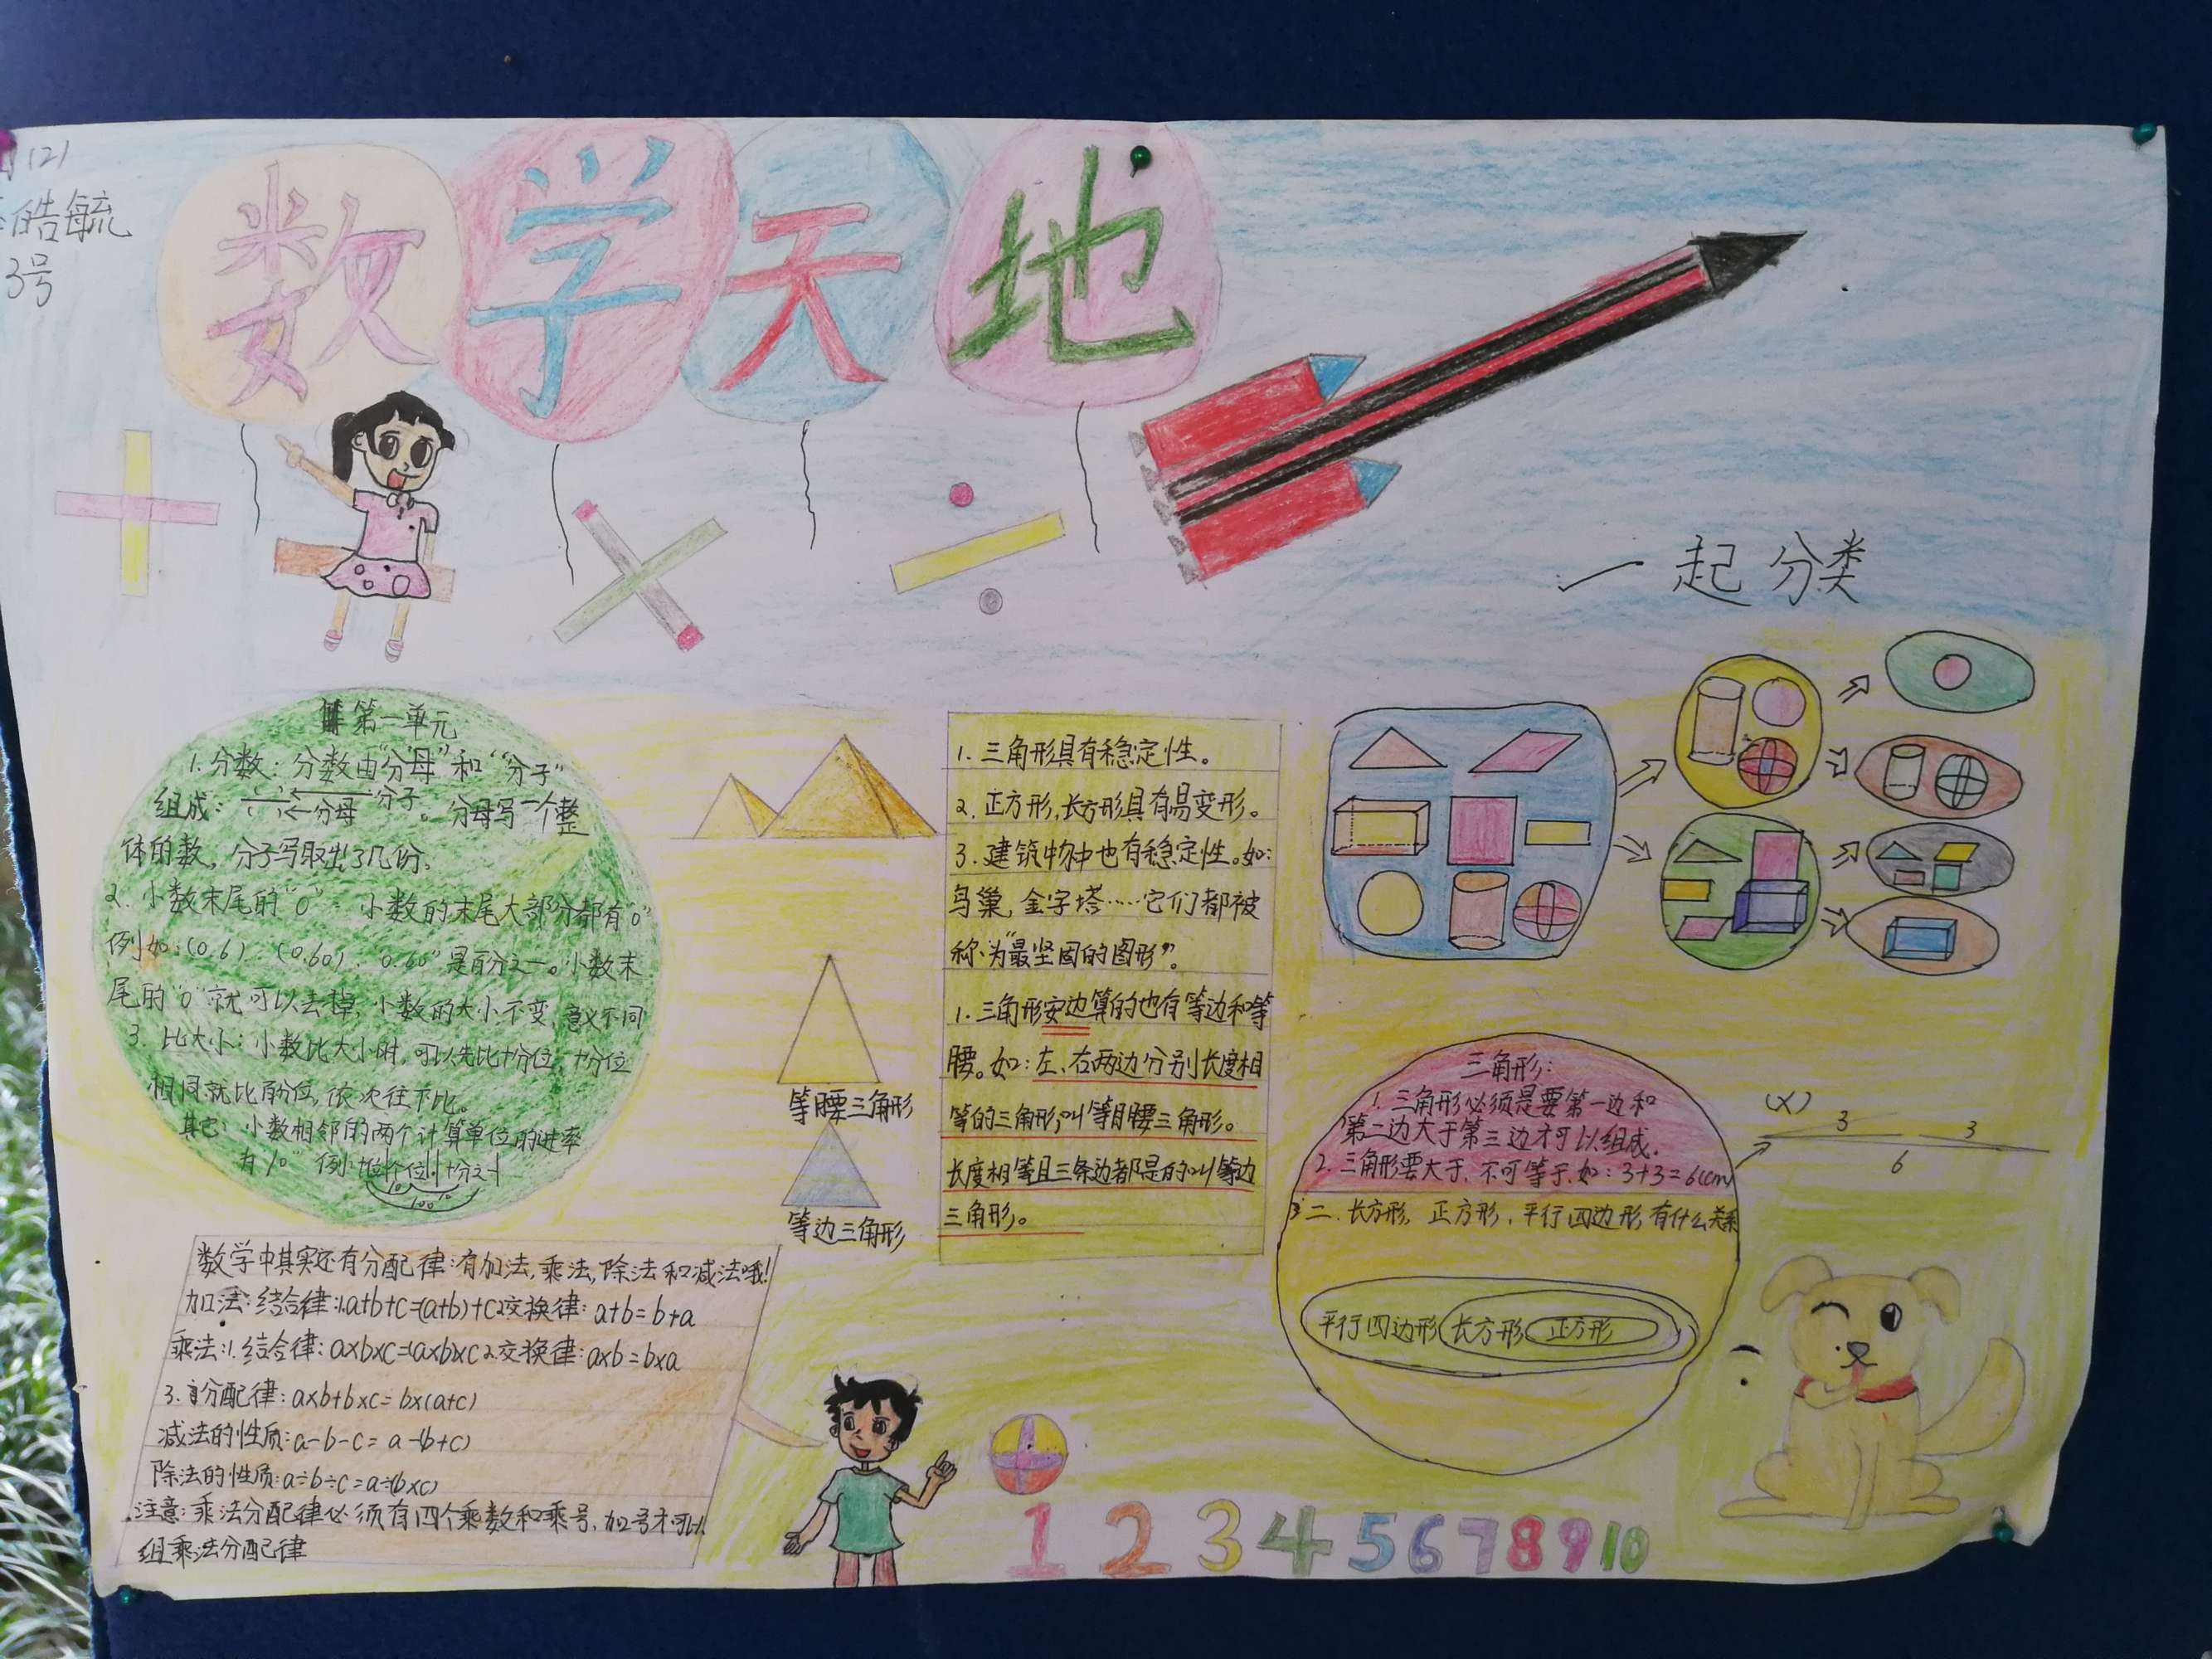 (2)
皓毓
3号
数学天地
一起分类
第一单元
1.分数：分数由“分母”和“分子”
组成：分子。分母写一个整
分母
体的数，分子写取出了几份。
2.小数末尾的“0”：小数的末尾大部分都有“0”
例如：(0.6)、(0.60)：“0.60”是百分之一。小数末
尾的“0”就可以去掉，小数的大小不变，意义不同
3.比大小：小数比大小时，可以先比十分位，十分位
相同就比百分位，依次往下比。
其它：小数相邻的两个计算单位的进率
为“10” 例：十位|个位|十分之一
10 10
100
1.三角形具有稳定性。
2.正方形，长方形具有易变形。
3.建筑物中也有稳定性。如：
鸟巢，金字塔……它们都被
称为“最坚固的图形”。
1.三角形安边算的也有等边和等
腰。如：左、右两边分别长度相
等的三角形，叫等腰三角形。
长度相等且三条边都是的叫等边
三角形。
等腰三角形
等边三角形
三角形：
1.三角形必须是要第一边和
第二边大于第三边才可以组成.
2.三角形要大于，不可等于.如：3+3=6(cm)
二.长方形，正方形，平行四边形有什么关系
平行四边形 长方形 正方形
(×)
3 3
6
数学中其实还有分配律：有加法，乘法，除法和减法哦！
加法：结合律：1.a+b+c=(a+b)+c2.交换律：a+b=b+a
乘法：1.结合律：a×b×c=(a×b)×c2.交换律：a×b=b×a
3.分配律：a×b+b×c=b×(a+c)
减法的性质：a-b-c=a-(b+c)
除法的性质：a÷b÷c=a÷(b×c)
注意：乘法分配律必须有四个乘数和乘号，加号才可以
组乘法分配律
1 2 3 4 5 6 7 8 9 10